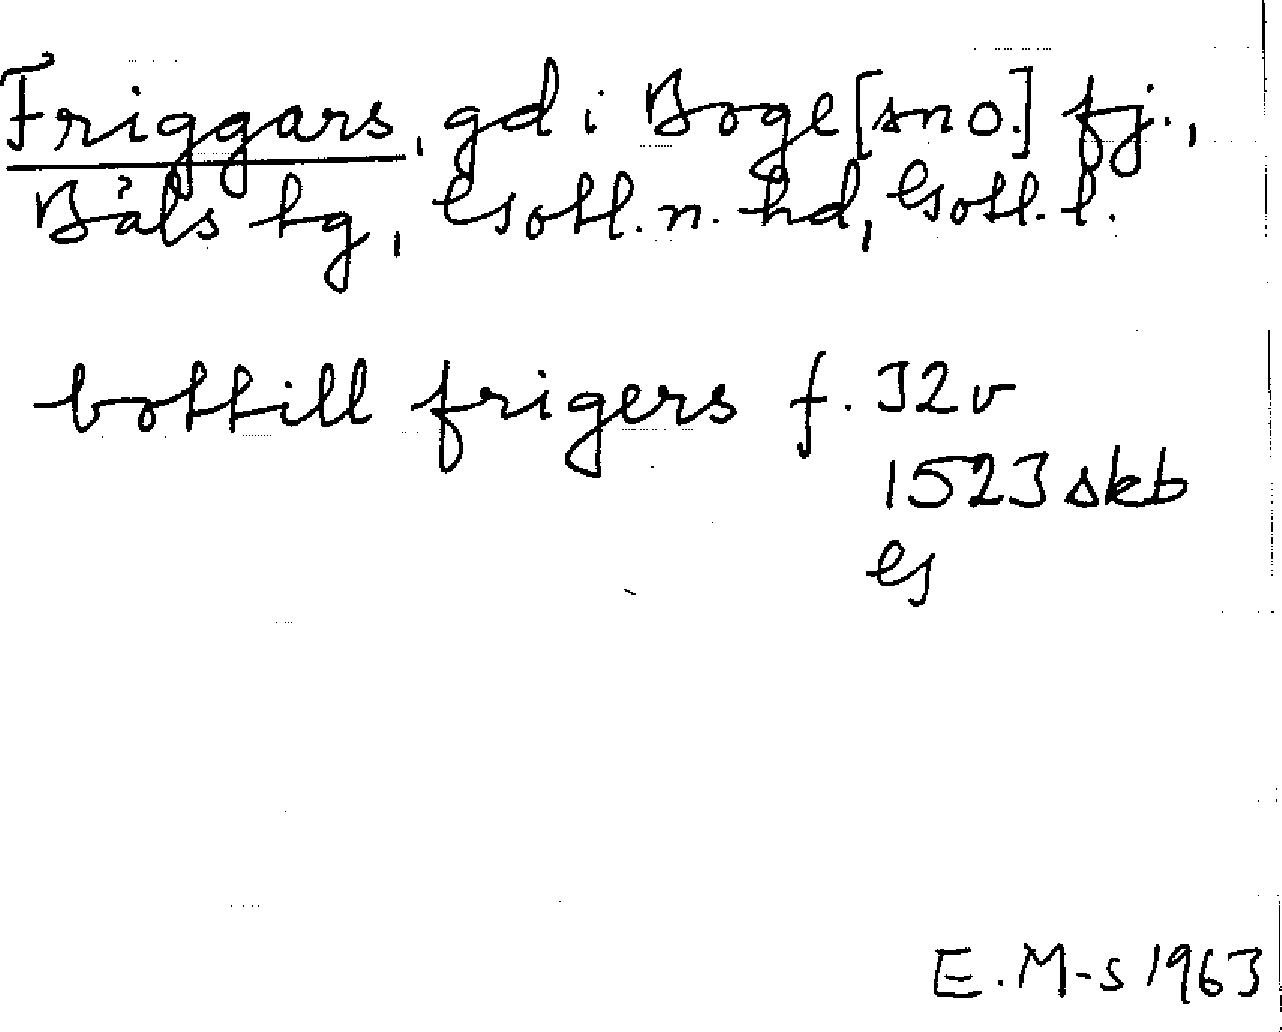 Friggars, gd i Boge [sn o.] fj.,
Bäls tg, Gotl. n. hd, Gotl. l.
bottill frigers f. 32v
1523 skb
G
E. M-s 1963